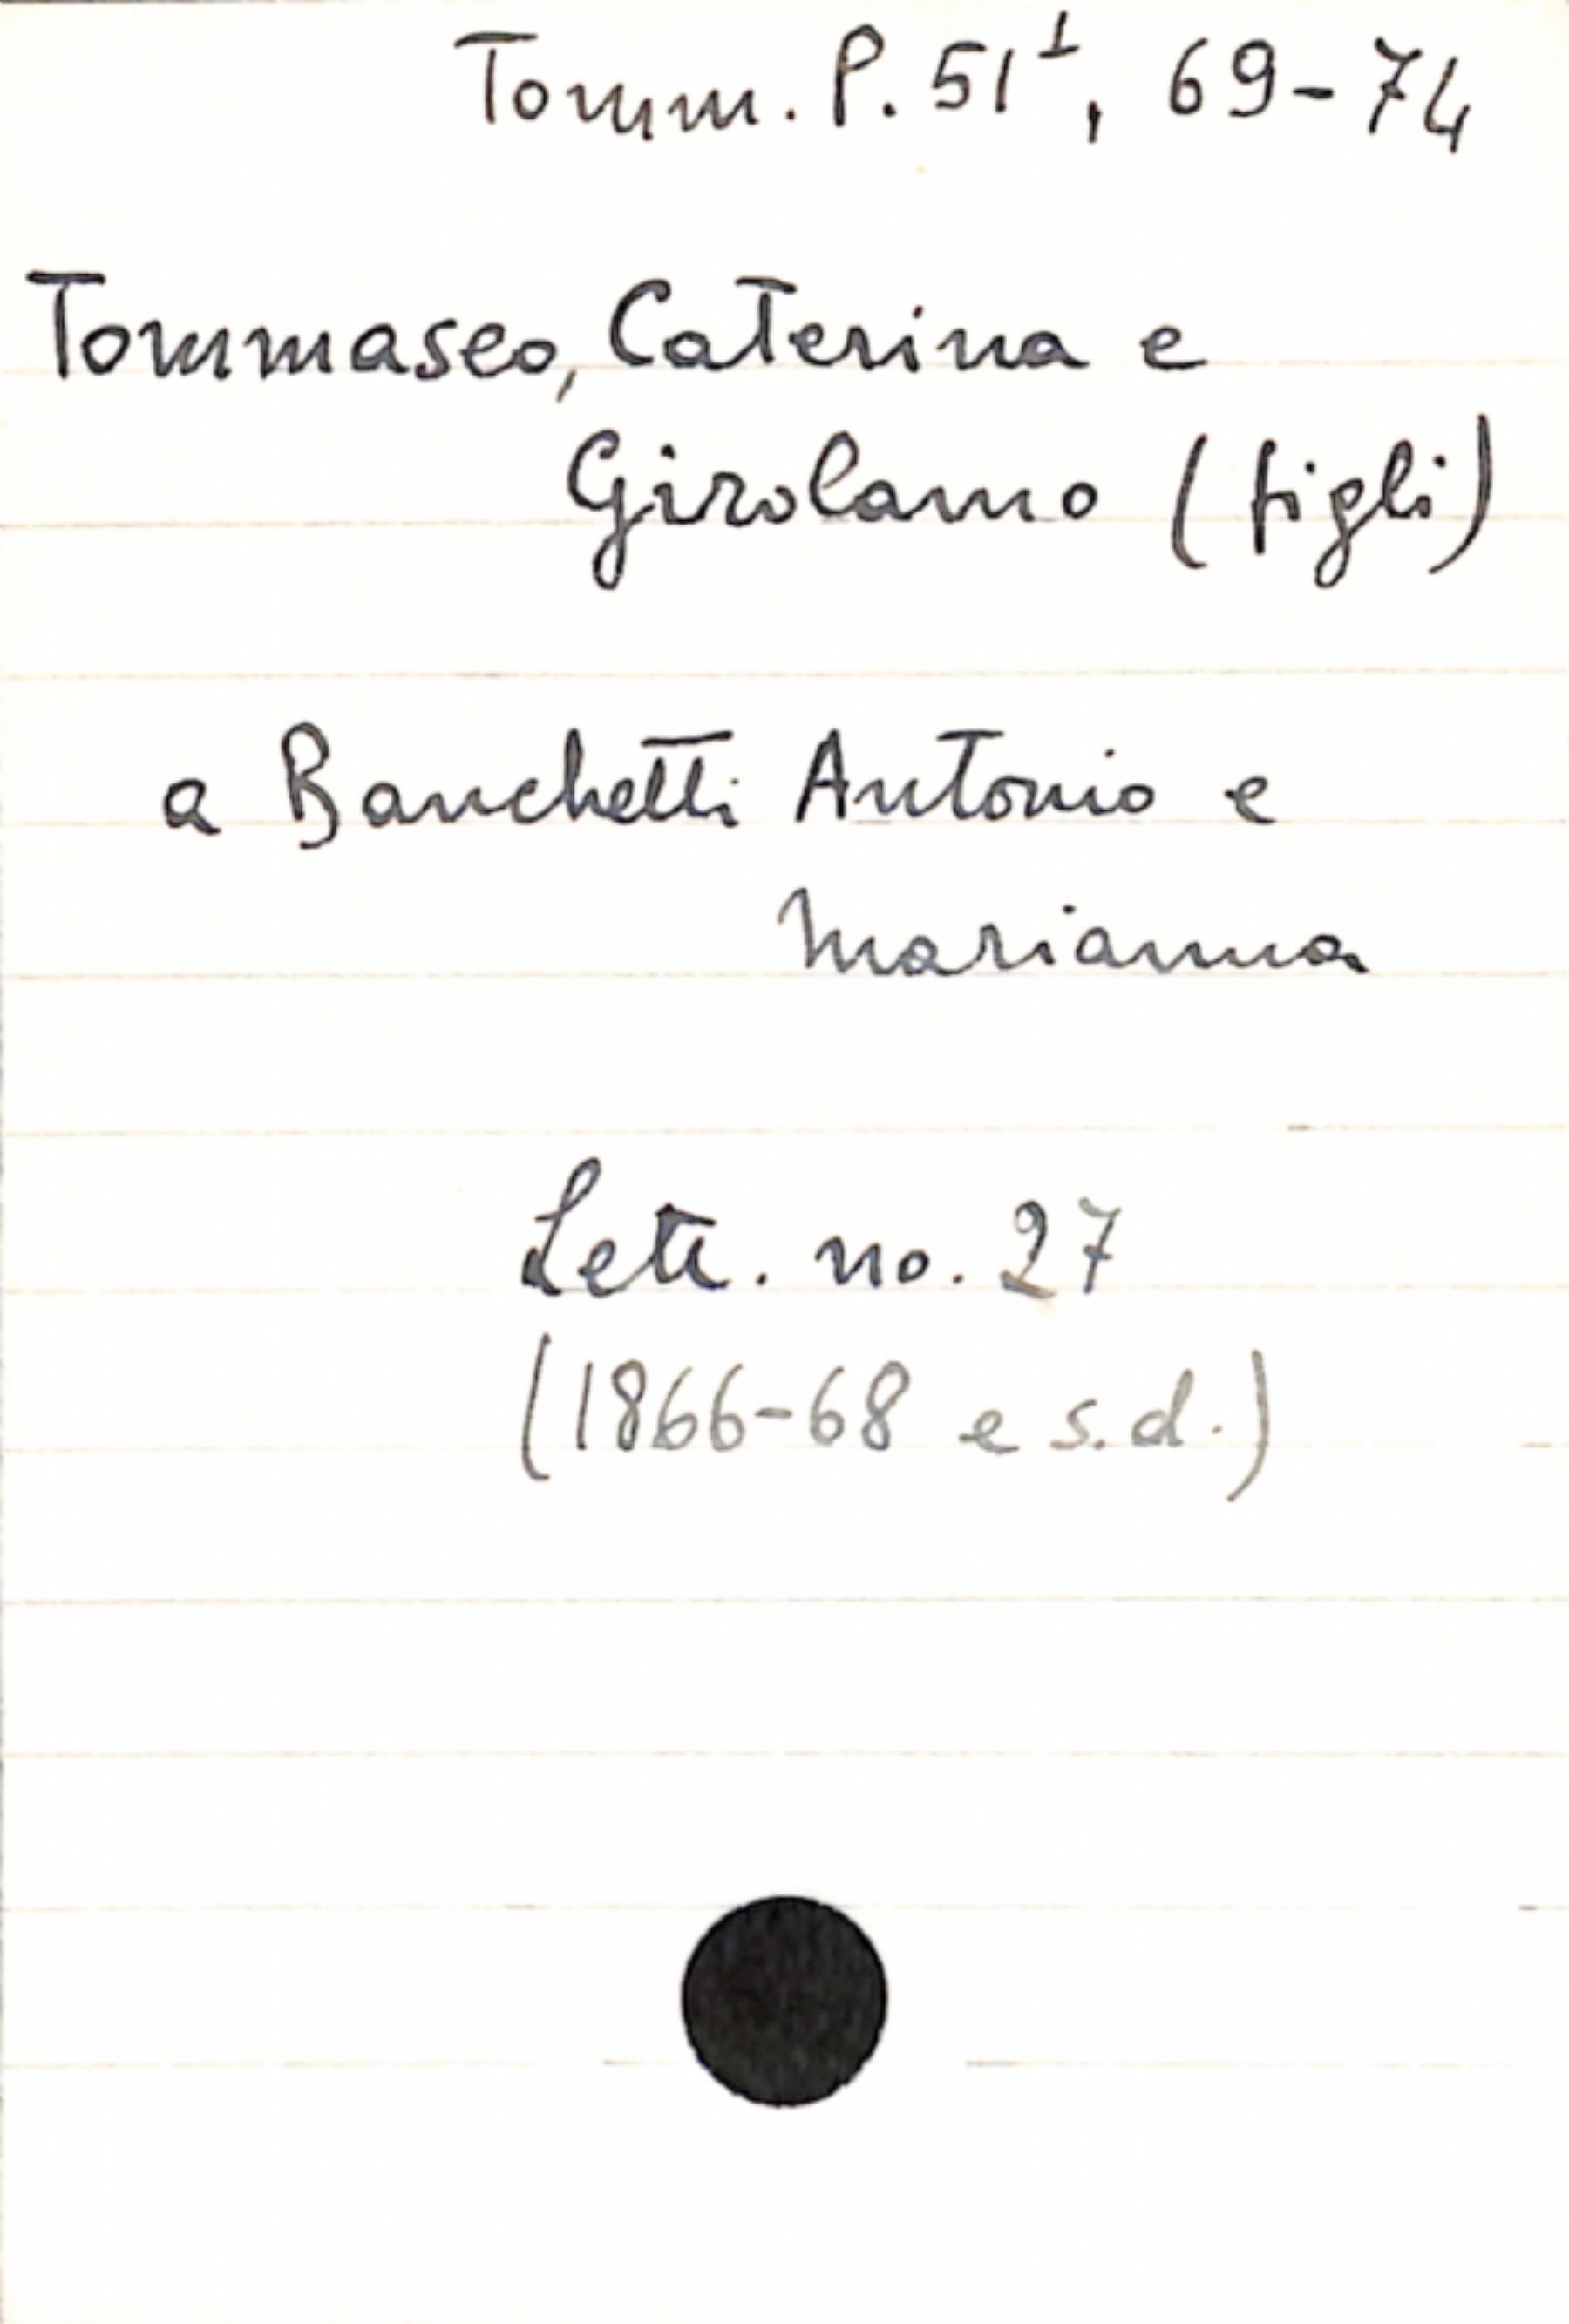 Tomm. P. 51¹, 69-74
Tommaseo, Caterina e
Girolamo (figli)
a Banchetti Antonio e
Marianna
Lett. no. 27
(1866-68 e s.d.)